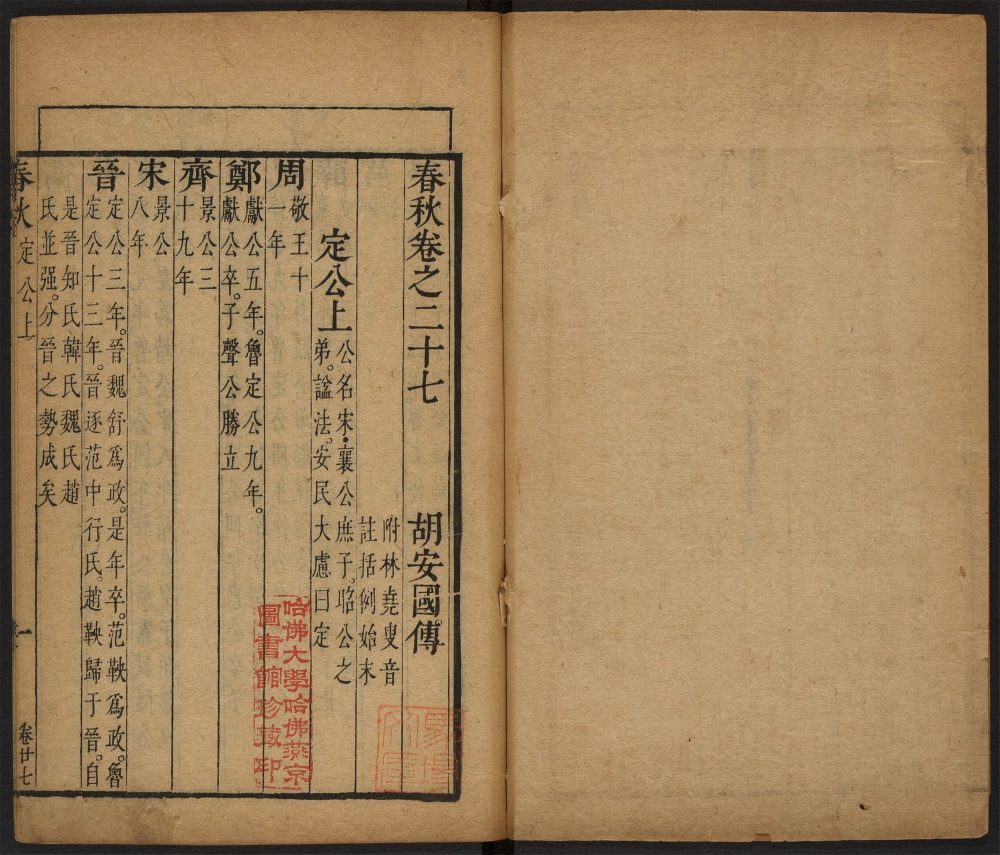 春秋卷之二十七
胡安國傳
附林堯叟音
註括例始末
定公上
公名宋襄公庶子。昭公之
弟。諡法。安民大慮曰定
周
敬王十
一年
鄭
獻公五年。魯定公九年。
獻公卒。子聲公勝立
齊
景公三
十九年
宋
景公
八年
晉
定公三年。晉魏舒爲政。是年卒。范鞅爲政。魯
定公十三年。晉逐范中行氏。趙鞅歸于晉。自
是晉知氏韓氏魏氏趙
氏並强。分晉之勢成矣
春秋
定公上
一
卷廿七
哈佛大學哈佛燕京
圖書館珍藏印